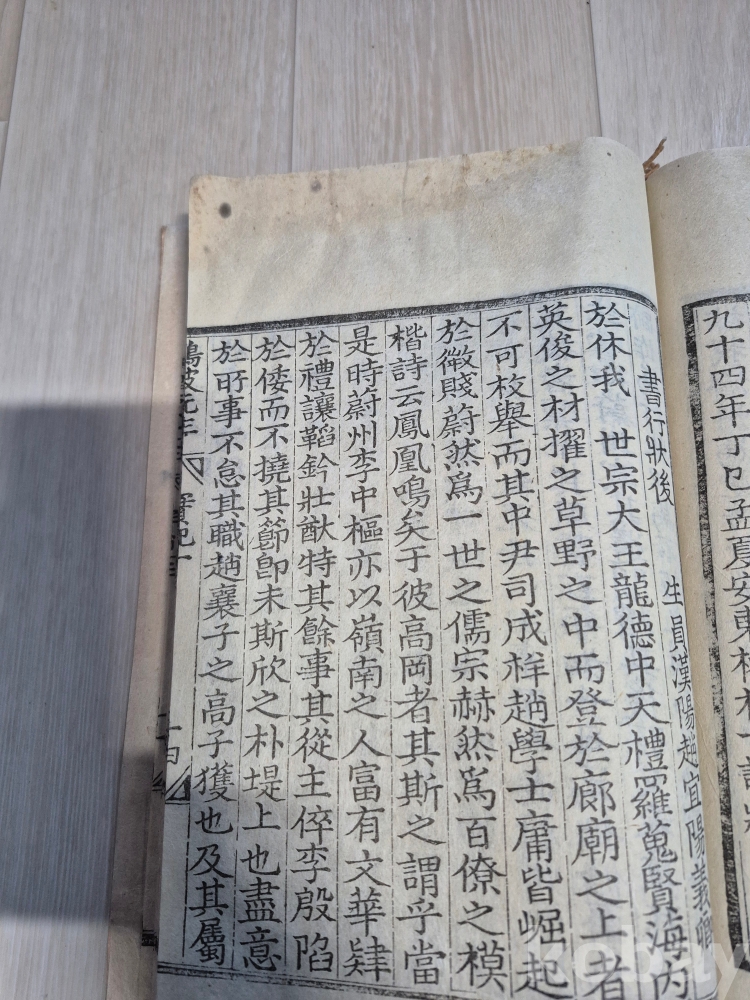 九十四年丁巳孟夏安東權相一謹狀
書行狀後 生員漢陽趙宜陽義卿
於休我 世宗大王龍德中天禮羅蒐賢海內
英俊之材擢之草野之中而登於廊廟之上者
不可枚舉而其中尹司成祥趙學士庸皆崛起
於微賤蔚然爲一世之儒宗赫然爲百僚之模
楷詩云鳳凰鳴矣于彼高岡者其斯之謂乎當
是時蔚州李中樞亦以嶺南之人富有文華肄
於禮讓韜鈐壯猷特其餘事其從主倅李殷陷
於倭而不撓其節卽未斯欣之朴堤上也盡意
於所事不怠其職趙襄子之高子獲也及其屬
鶴坡先生
實紀一
kobay